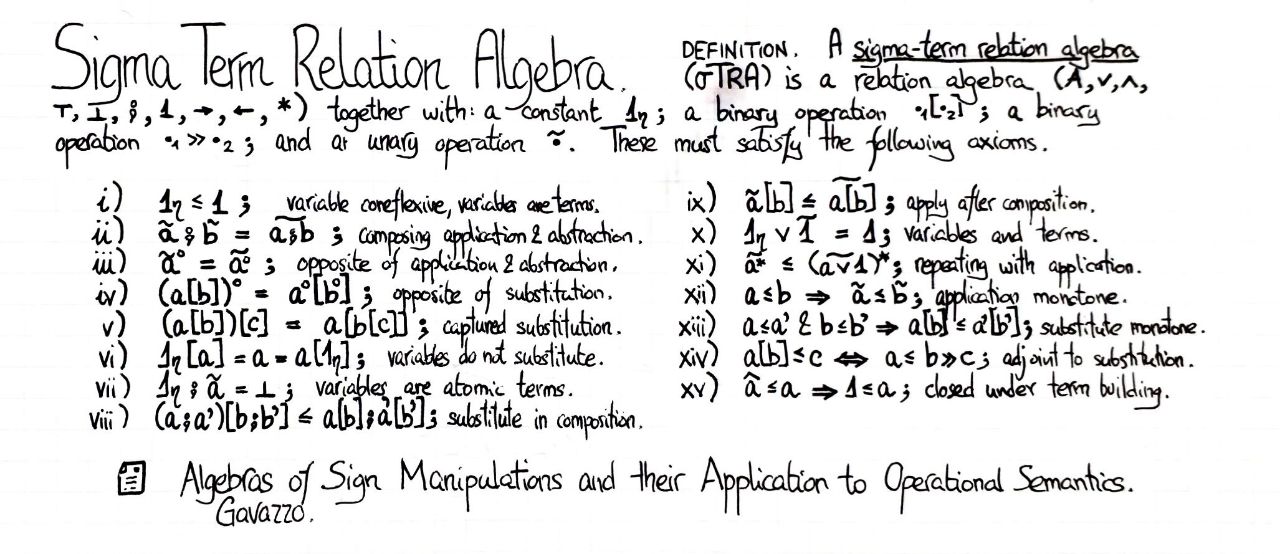 Sigma Term Relation Algebra.
DEFINITION. A sigma-term relation algebra
(σTRA) is a relation algebra (A,∨,∧,
⊤, ⊥, ⨾, 1, →, ←, *) together with: a constant 1η ; a binary operation •₁[•₂] ; a binary
operation •₁ ≫ •₂ ; and an unary operation ~•. These must satisfy the following axioms.
i) 1η ≤ 1 ; variable coreflexive, variables are terms.
ii) ã ⨾ b̃ = \widetilde{a⨾b} ; composing application & abstraction.
iii) ã° = \widetilde{a°} ; opposite of application & abstraction.
iv) (a[b])° = a°[b°] ; opposite of substitution.
v) (a[b])[c] = a[b[c]] ; captured substitution.
vi) 1η[a] = a = a[1η] ; variables do not substitute.
vii) 1η ⨾ ã = ⊥ ; variables are atomic terms.
viii) (a⨾a')[b⨾b'] ≤ a[b]⨾a'[b'] ; substitute in composition.
ix) ã[b] ≤ \widetilde{a[b]} ; apply after composition.
x) 1η ∨ 1̃ = 1 ; variables and terms.
xi) \widetilde{a*} ≤ (\widetilde{a∨1})* ; repeating with application.
xii) a≤b ⇒ ã≤b̃ ; application monotone.
xiii) a≤a' & b≤b' ⇒ a[b]≤a'[b'] ; substitute monotone.
xiv) a[b]≤c ⇔ a≤ b≫c ; adjoint to substitution.
xv) â≤a ⇒ 1≤a ; closed under term building.
Algebras of Sign Manipulations and their Application to Operational Semantics.
Gavazzo.